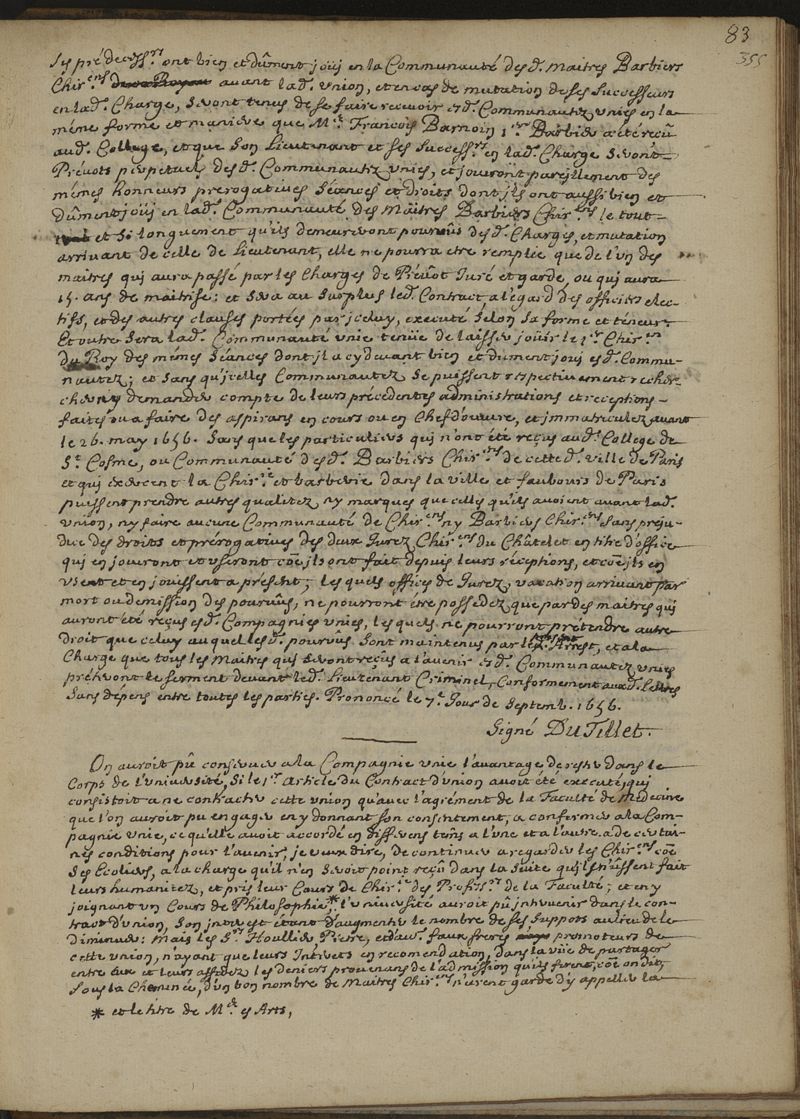 83
355
ses prédecess.rs ont bien et dûment joüj en la Communauté desd. Maitres Barbiers
Chir.ens avant lad. union, et en cas de mutation de ses Successeurs
en lad. Charge, seront tenus de se faire recevoir esd. Communautez unies en la
même forme et maniere que M.e François Barnoin 1.er Barbier a été reçû
aud. College, et que son Lieutenant et ses Success.rs en lad. Charge seront
Prévots perpetuels desd. Communautez unies, et joüiront pareillement des
mêmes honneurs prerogatives Séances et droits dont jls ont aussi bien et
dûment joüj en lad. Communauté des Maitres Barbiers Chir.ens le tout
et si longuement qu'ils demeureront pourvûs desd. Charges, et mutation
arrivant de celle de Lieutenant, elle ne pourra etre remplie que de l'un des
maitres qui aura passé par les Charges de Prévot Juré et garde, ou qui aura
15. ans de maitrise; et sera au surplus led. Contract a l'égard des officiers elec-
tifs, et des autres clauses portées par jceluy, executé selon sa forme et teneur.
Et outre sera lad. Communauté unie tenüe de laisser joüir le 1.er Chir.en
du Roy des mêmes Séances dont jl a cy devant bien et dument joüj esd. Commu-
nautez; et sans qu'jcelles Communautez se puissent respectivement recher-
cher ny demander compte de leurs précedentes administrations et receptions
faites ou a faire des aspirans en cours ou en Chefdoeuvre, et jmmatriculez avant
le 26. may 1656. Sans que les particuliers qui n'ont été reçus aud. College de
S.t Cosme, ou Communauté desd. Barbiers Chir.ens de cette d. ville de Paris
et qui exercent la Chir.ie et barberie dans la ville et faubours de Paris
puissent prendre autres qualitez ny marques que celles qu'ils avoient avant lad.
union, ny faire aucune Communauté de Chir.ens ny Barbiers Chir.ens sans preju-
dice des droits et prérogatives des deux Jurez Chir.ens du Châtelet en titre d'office
qui en joüiront et useront coe jls ont fait depuis leurs réceptions, et coe jls en
usent et en jouissent a présent; les quels offices de Jurez, vacation arrivant par
mort ou demission des pourvûs, ne pourront être possedez que par des maitres qui
auront été reçus esd. Compagnies unies, les quels ne pourront prétendre autre
droit que celuy au quel lesd. pourvûs sont maintenus par le présent Arrest, et a la
Charge que tous les Maitres qui seront reçûs a l'avenir esd. Communautez unies
préteront le serment devant led. Lieutenant Criminel, Conformement auxd. Lettres
Sans depens entre toutes les parties. Prononcé le 7.e Jour de Septemb. 1656.
Signé DuTillet.
On auroit pû conserver a la Compagnie unie l'avantage de rester dans le
Corps de l'université, si le 1.er Article du Contract d'union avoit été executé, qui
consistoit a ne contracter cette union qu'avec l'agrément de la Faculté de Medecine
que l'on auroit pu engager en y donnant son consentement, a confermer a la Com-
pagnie unie, ce qu'elle avoit accordé en differens tems a l'une et a l'autre a de certai-
nes conditions pour l'avenir, je veux dire, de continuer a regarder les Chir.ens coe
ses Ecoliers, a la charge qu'il n'en seroit point reçû dans la suite qui n'ûssent fait
leurs humanitez, et pris leur Cours de Chir.ie des Profess.rs de la Faculté; et en y
joignant un Cours de Philosophie,* l'université auroit pû jntervenir dans le con-
tract d'union, son jnterest étant d'augmenter le nombre de ses suppots au lieu de le
diminuer: mais les S.rs Houllier, Pierre, et d'au. faux freres promoteurs de
cette union, n'ayant que leurs Intérets en recomendation, dans la vüe de partager
entre eux et leurs affidez les deniers provenans de l'admission qu'ils firent, coe on dit,
sous la Cheminée, d'un bon nombre de Maitres Chir.ens n'urent garde d'y appeller la
* et le titre de M.e es Arts,